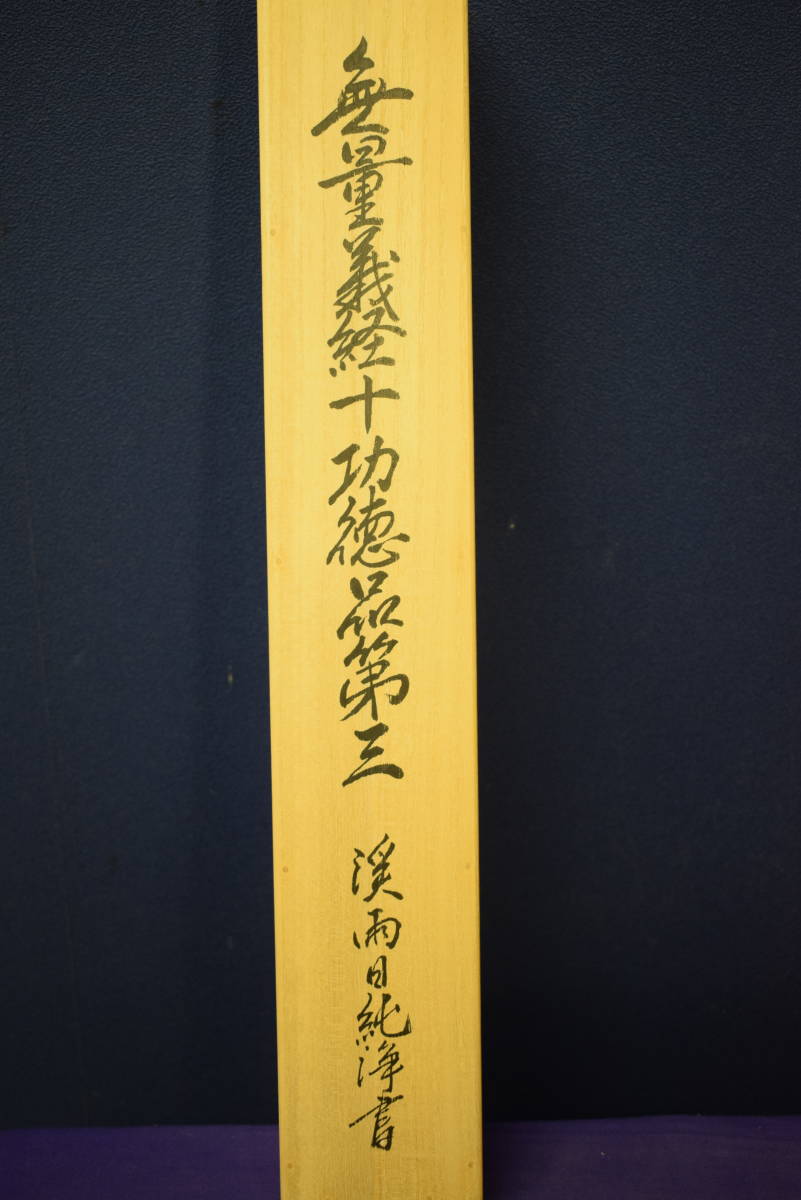 無量義経十功徳品第三　渓雨日純浄書